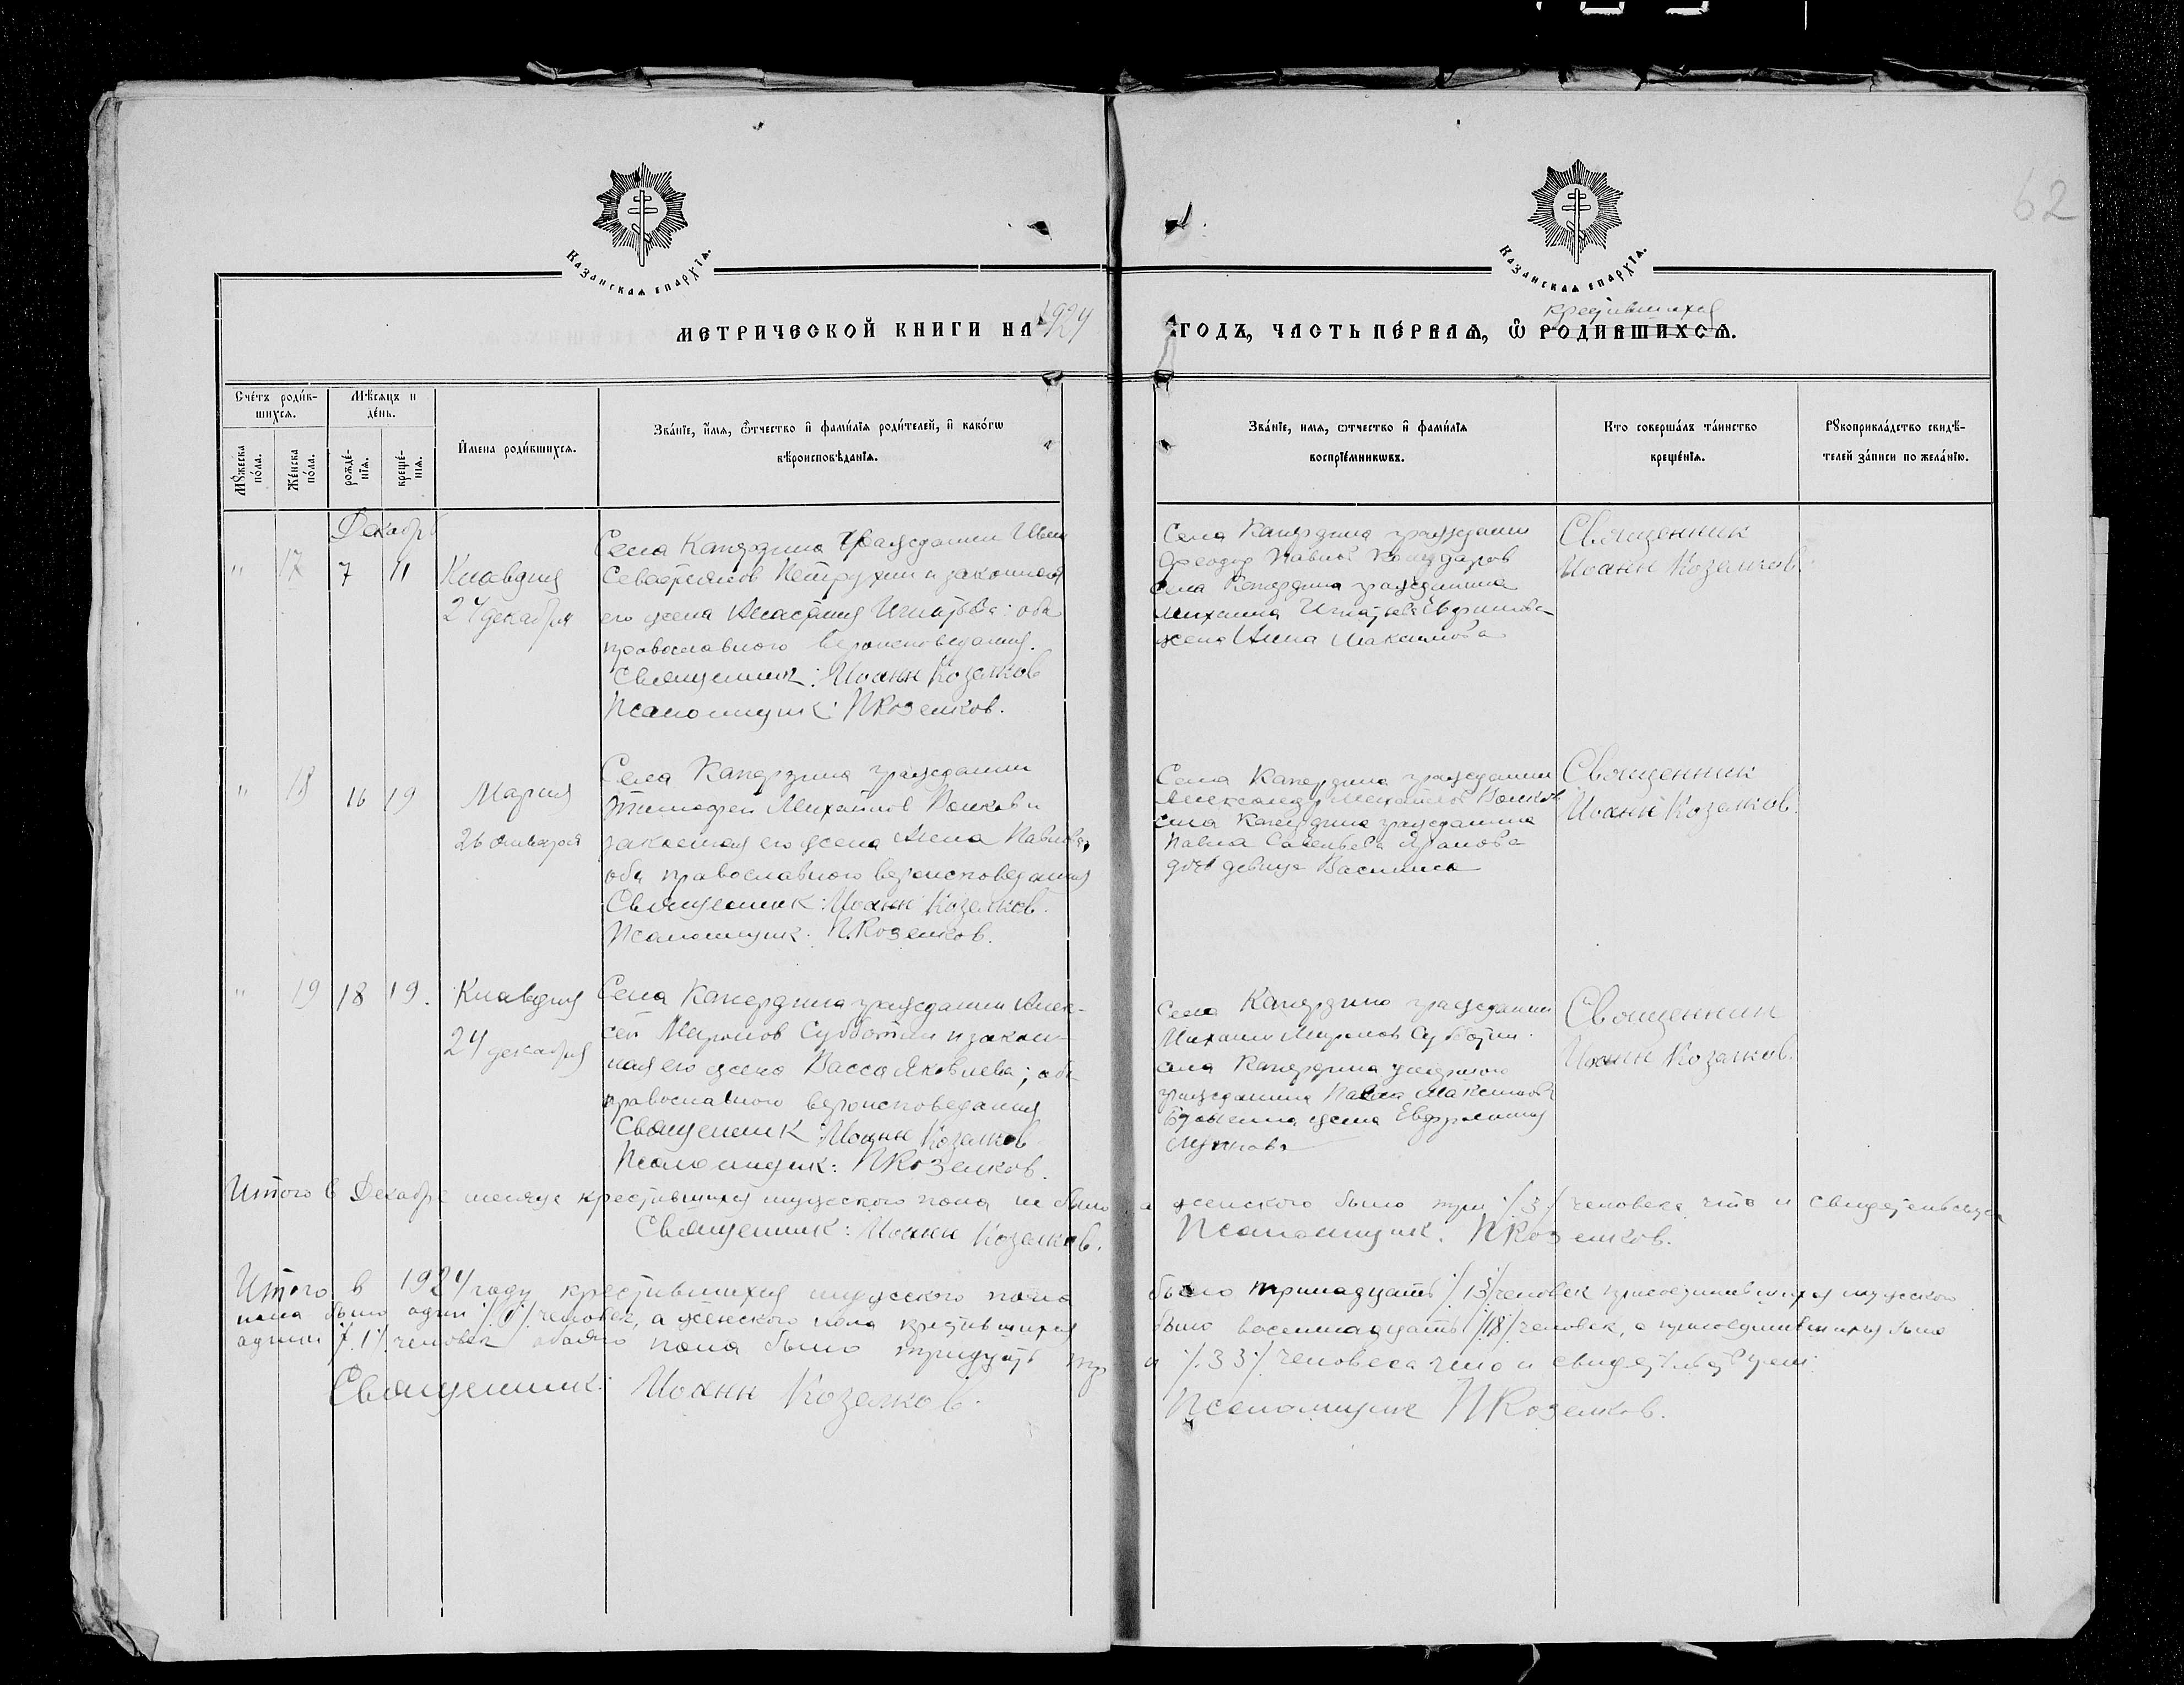 62
Казанская епархїѧ.
Казанская епархїѧ.
крестившихся
МЕТРИЧЕСКОЙ КНИГИ НА 1924 ГОДЪ, ЧАСТЬ ПЕ́РВАѦ, Ѽ РОДИВШИХСѦ.
Сче́тъ роди́в-
шихсѧ.
Мѣ́сѧцъ и
де́нь.
Мꙋ́жеска
по́ла.
Же́нска
по́ла.
рожде́-
нїѧ.
креще́-
нїѧ.
И҆мена роди́вшихсѧ.
Зва́нїе, и҆мѧ, ѻ҆тчество и҆ фами́лїѧ роди́телей, и҆ како́гѡ
вѣроисповѣ́данїѧ.
Зва́нїе, имѧ, ѻтчество и҆ фами́лїѧ
воспрїе́мникѡвъ.
Кто соверша́лъ та́инство
креще́нїѧ.
Рꙋкоприкла́дство свидѣ́-
телей за́писи по жела́нїю.
Декабрь
" 17 7 11
Клавдия
24 декабря
Села Гражданин Иван
Севастьянов Петрухин и законная
его жена Анастасия Игнатьева: оба
православного вероисповедания.
Священник: Иоанн Козелков
Псаломщик: П Козелков.
Села гражданин
Феодор Павлов
Села гражданина
Михаила Игнатьева
жена Анна Максимова
Священник
Иоанн Козелков.
" 18 16 19
Мария
26 января
Села гражданин
Тимофей Михайлов Волков и
законная его жена Анна Павлова,
оба православного вероисповедания
Священник: Иоанн Козелков.
Псаломщик: П. Козелков.
Села гражданин
Александр Михайлов Волков
села гражданина
Павла Савельева
дочь девица Василиса
Священник
Иоанн Козелков.
" 19 18 19.
Клавдия
24 декабря
Села гражданин Алек-
сей Миронов Субботин и закон-
ная его жена Васса Яковлева; оба
православного вероисповедания
Священник: Иоанн Козелков
Псаломщик: П Козелков.
Села гражданин
Михаил Миронов Субботин.
села умершего
гражданина Павла Максимова
жена Евфросиния
Священник
Иоанн Козелков.
Итого в Декабре месяце крестившихся мужеского пола не было а женского было три /3/ человека что и свидетельствуем
Священник: Иоанн Козелков.
Псаломщик: П Козелков.
Итого в 1924 году крестившихся мужеского пола было тринадцать /13/ человек присоединившихся мужеского
пола было один /1/ человек, а женского пола крестившихся было восемнадцать /18/ человек, а присоединившихся было
один /1/ человек обоего пола было тридцать три /33/ человека что и свидетельствуем.
Священник: Иоанн Козелков.
Псаломщик П Козелков.